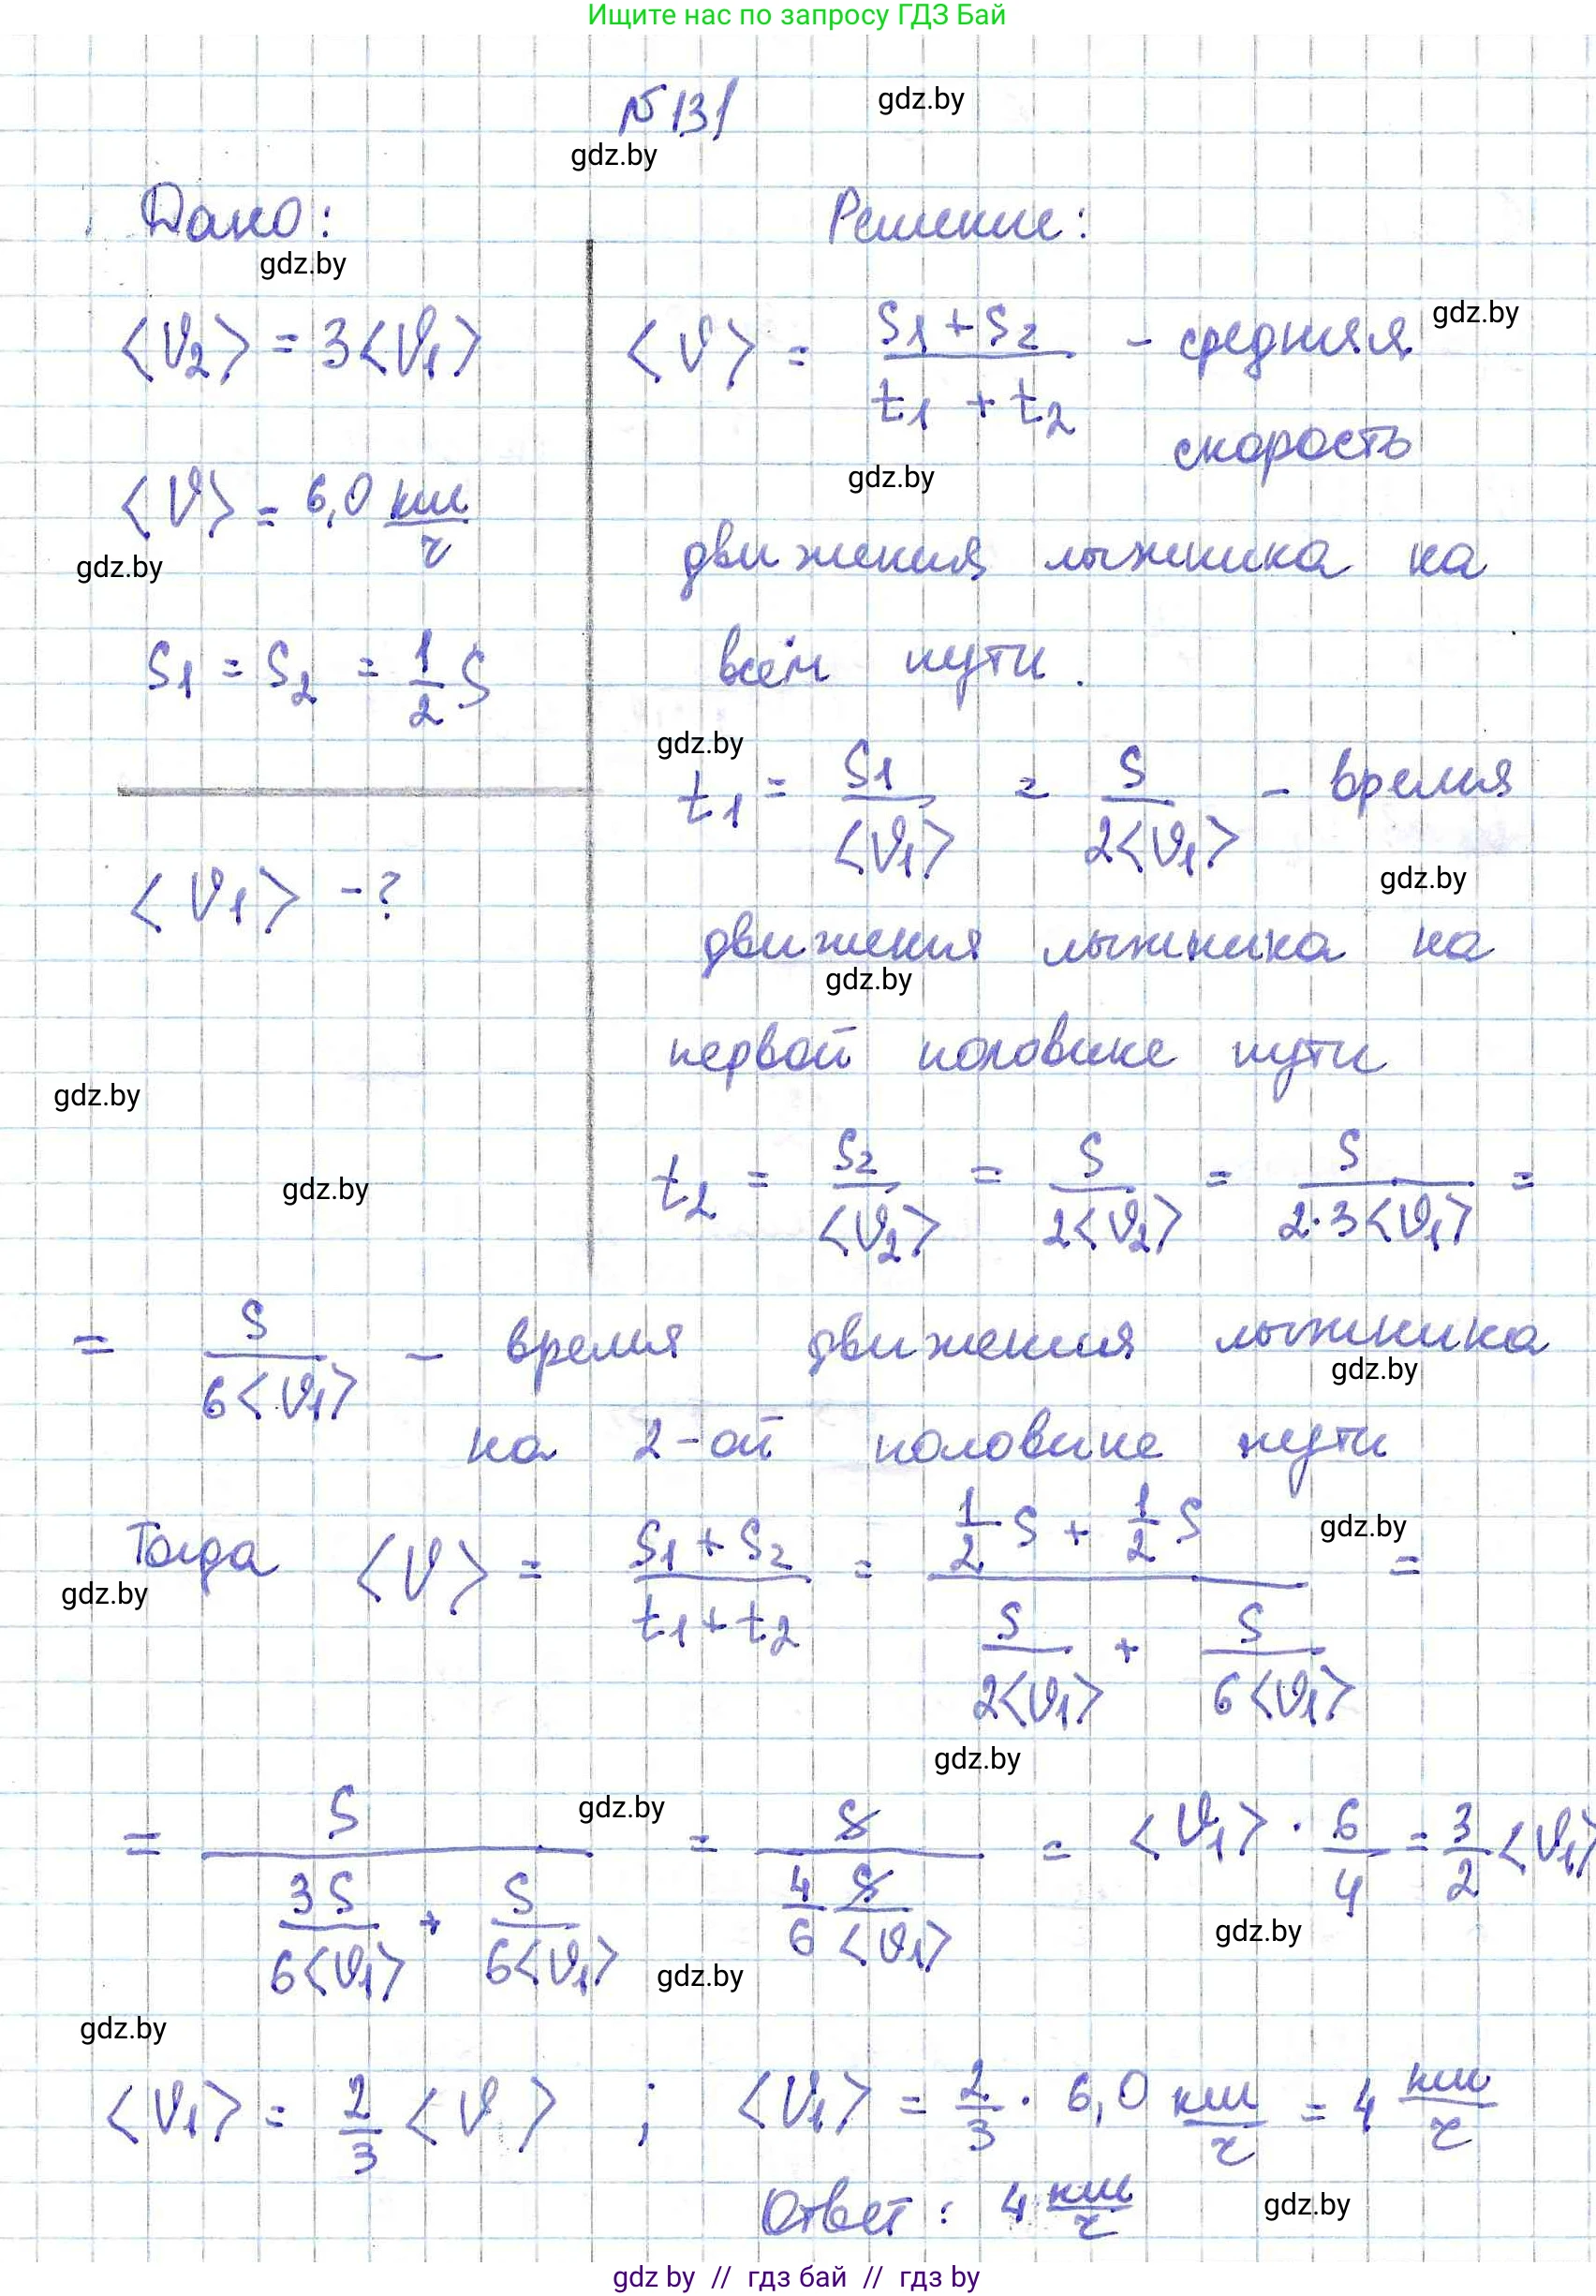 Ищите нас по запросу ГДЗ Бай
№131
gdz.by
gdz.by
Дано:
gdz.by
⟨υ₂⟩ = 3⟨υ₁⟩
⟨υ⟩ = 6,0 км/ч
gdz.by
S₁ = S₂ = 1/2 S
⟨υ₁⟩ - ?
gdz.by
gdz.by
Решение:
⟨υ⟩ = (S₁ + S₂)/(t₁ + t₂) - средняя
gdz.by
скорость
gdz.by
движения лыжника на
всём пути.
gdz.by
t₁ = S₁/⟨υ₁⟩ = S/(2⟨υ₁⟩) - время
gdz.by
движения лыжника на
gdz.by
первой половине пути
t₂ = S₂/⟨υ₂⟩ = S/(2⟨υ₂⟩) = S/(2·3⟨υ₁⟩) =
= S/(6⟨υ₁⟩) - время движения лыжника
gdz.by
на 2-ой половине пути
gdz.by
Тогда ⟨υ⟩ = (S₁ + S₂)/(t₁ + t₂) = (1/2 S + 1/2 S)/(S/(2⟨υ₁⟩) + S/(6⟨υ₁⟩)) =
gdz.by
gdz.by
gdz.by
= S/(3S/(6⟨υ₁⟩) + S/(6⟨υ₁⟩)) = S/(4/6 S/⟨υ₁⟩) = ⟨υ₁⟩ · 6/4 = 3/2 ⟨υ₁⟩
gdz.by
gdz.by
gdz.by
⟨υ₁⟩ = 2/3 ⟨υ⟩ ; ⟨υ₁⟩ = 2/3 · 6,0 км/ч = 4 км/ч
Ответ: 4 км/ч
gdz.by
gdz by // гдз бай // гдз by